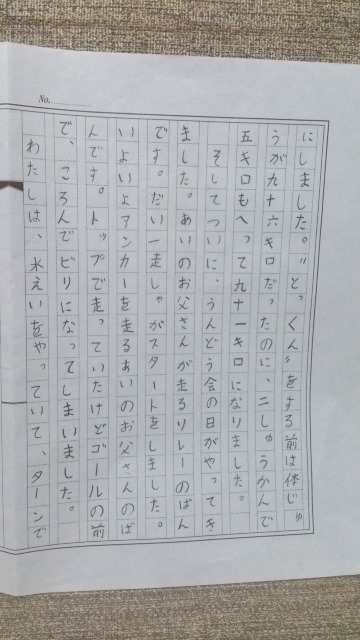 No.
にしました。〝とっくん〟をする前は体じゅ
うが九十六キロだったのに、二しゅうかんで
五キロもへって九十一キロになりました。
そしてついに、うんどう会の日がやってき
ました。あいのお父さんが走るリレーのばん
です。だい一走しゃがスタートをしました。
いよいよアンカーを走るあいのお父さんのば
んです。トップで走っていたけどゴールの前
で、ころんでビリになってしまいました。
わたしは、水えいをやっていて、ターンで